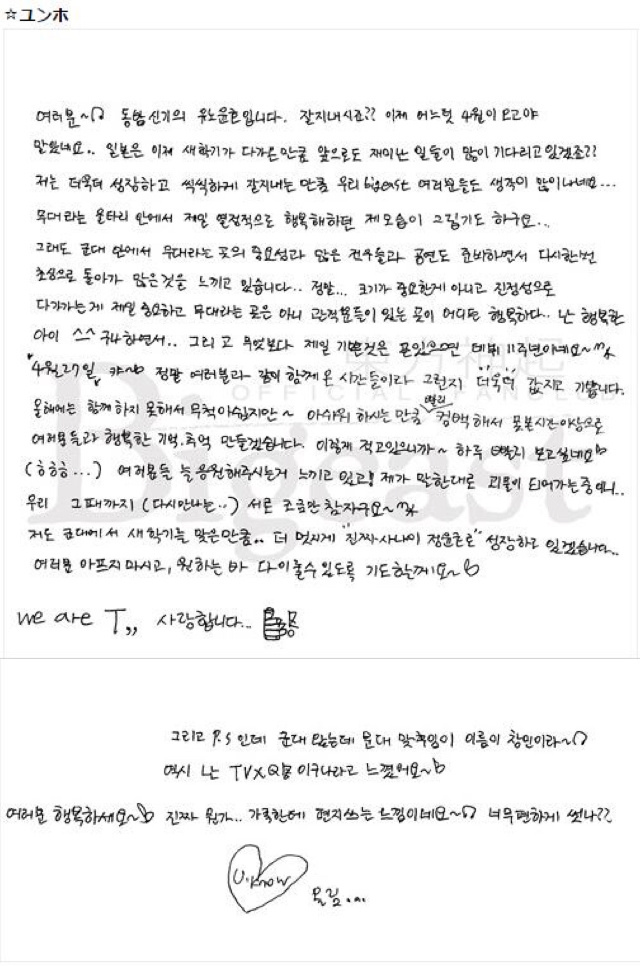 ☆ユンホ
여러분~♪ 동방신기의 유노윤호입니다. 잘지내시죠?? 이제 어느덧 4월이 오고야
말았네요.. 일본은 이제 새학기가 다가온만큼 앞으로도 재미난 일들이 많이 기다리고 있겠죠??
저는 더욱더 성장하고 씩씩하게 잘지내는 만큼 우리 bigeast 여러분들도 생각이 많이나네요...
무대라는 울타리 안에서 제일 열정적으로 행복해하던 제모습이 그립기도 하구요...
그래도 군대 안에서 무대라는 곳의 중요성과 많은 전우들과 공연도 준비하면서 다시한번
초심으로 돌아가 많은것을 느끼고 있습니다.. 정말... 크기가 중요한게 아니고 진정성으로
다가가는게 제일 중요하고 무대라는 곳은 아니 관객분들이 있는 곳이 어디든 행복하다.. 난 행복한
아이 ^^ 구나 하면서.. 그리고 무엇보다 제일 기쁜것은 곧있으면 데뷔 11주년이네요~
"4월27일" 캬~ 정말 여러분과 같이 함께 온 시간들이라 그런지 더욱더 값지고 기쁩니다.
올해에는 함께 하지 못해서 무척 아쉽지만~ 아쉬워 하시는 만큼 빨리 컴백해서 못본시간이상으로
여러분들과 행복한 기억.추억 만들겠습니다. 이렇게 적고있으니까~ 하루 빨리 보고싶네요
(ㅎㅎㅎ...) 여러분들 늘 응원해주시는거 느끼고 있고! 제가 말한대로 괴물이 되어가는중이니..
우리 그때까지 (다시만나는..) 서로 조금만 참자구요~
저도 군대에서 새 학기를 맞은만큼.. 더 멋지게 "진짜사나이 정윤호로" 성장하고 있겠습니다..
여러분 아프지 마시고, 원하는 바 다 이룰수 있도록 기도할께요~
we are T,, 사랑합니다...
그리고 P.S 인데 군대 왔는데 분대 맞후임이 이름이 창민이라~♪
역시 나는 TVXQ몸이구나라고 느꼈어요~
여러분 행복하세요~ 진짜 뭔가.. 가족한테 편지쓰는 느낌이네요~♪ 너무편하게 썼나??
U.know 올림...
東方神起
OFFICIAL FANCLUB
Bigeast